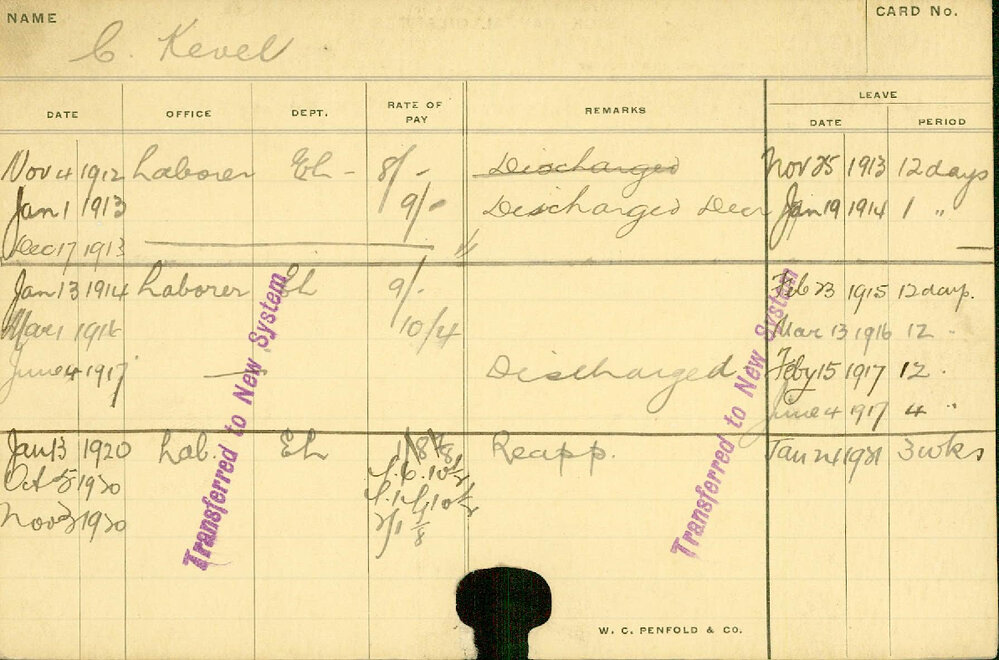 NAME CARD No.
C. Kevel
DATE OFFICE DEPT. RATE OF PAY REMARKS LEAVE
DATE PERIOD
Nov 4 1912 Laborer Eh - 8/- Discharged Nov 25 1913 12 days
Jan 1 1913 9/- Discharged Decr Jan 19 1914 1 "
Dec 17 1913
Jan 13 1914 Laborer Eh 9/- Feb 23 1915 12 days.
Mar 1 1916 10/4 Mar 13 1916 12 "
June 4 1917 Discharged Feby 15 1917 12 "
June 4 1917 4 "
Jan 13 1920 Lab. Eh Reapp. Jan 24 1921 3 wks
Oct 5 1920
Nov 1920
Transferred to New System
Transferred to New System
W. C. PENFOLD & CO.